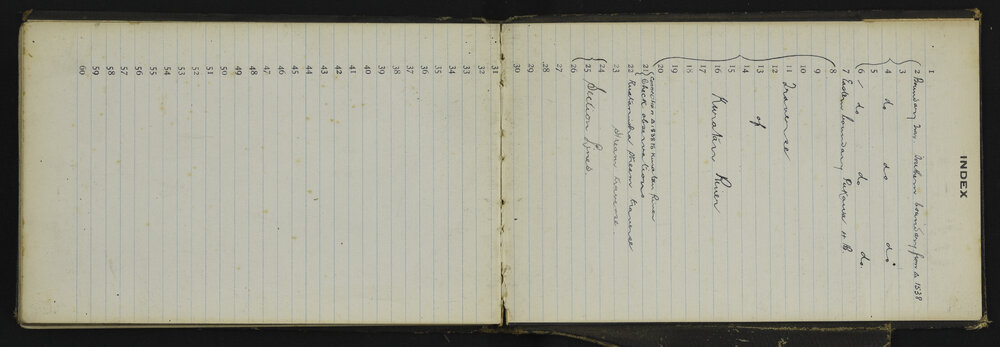 INDEX
1
2 Boundary Southern boundary from Δ 1538
3
4 do do do
5
6 do do do
7 Eastern boundary
8
9
10
11 Traverse
12
13 of
14
15
16 Kuratau River
17
18
19
20 Connection Δ Kuratau River
21 Check observations
22 stream traverse
23 Stream traverse
24
25 Section Lines
26
27
28
29
30
31
32
33
34
35
36
37
38
39
40
41
42
43
44
45
46
47
48
49
50
51
52
53
54
55
56
57
58
59
60